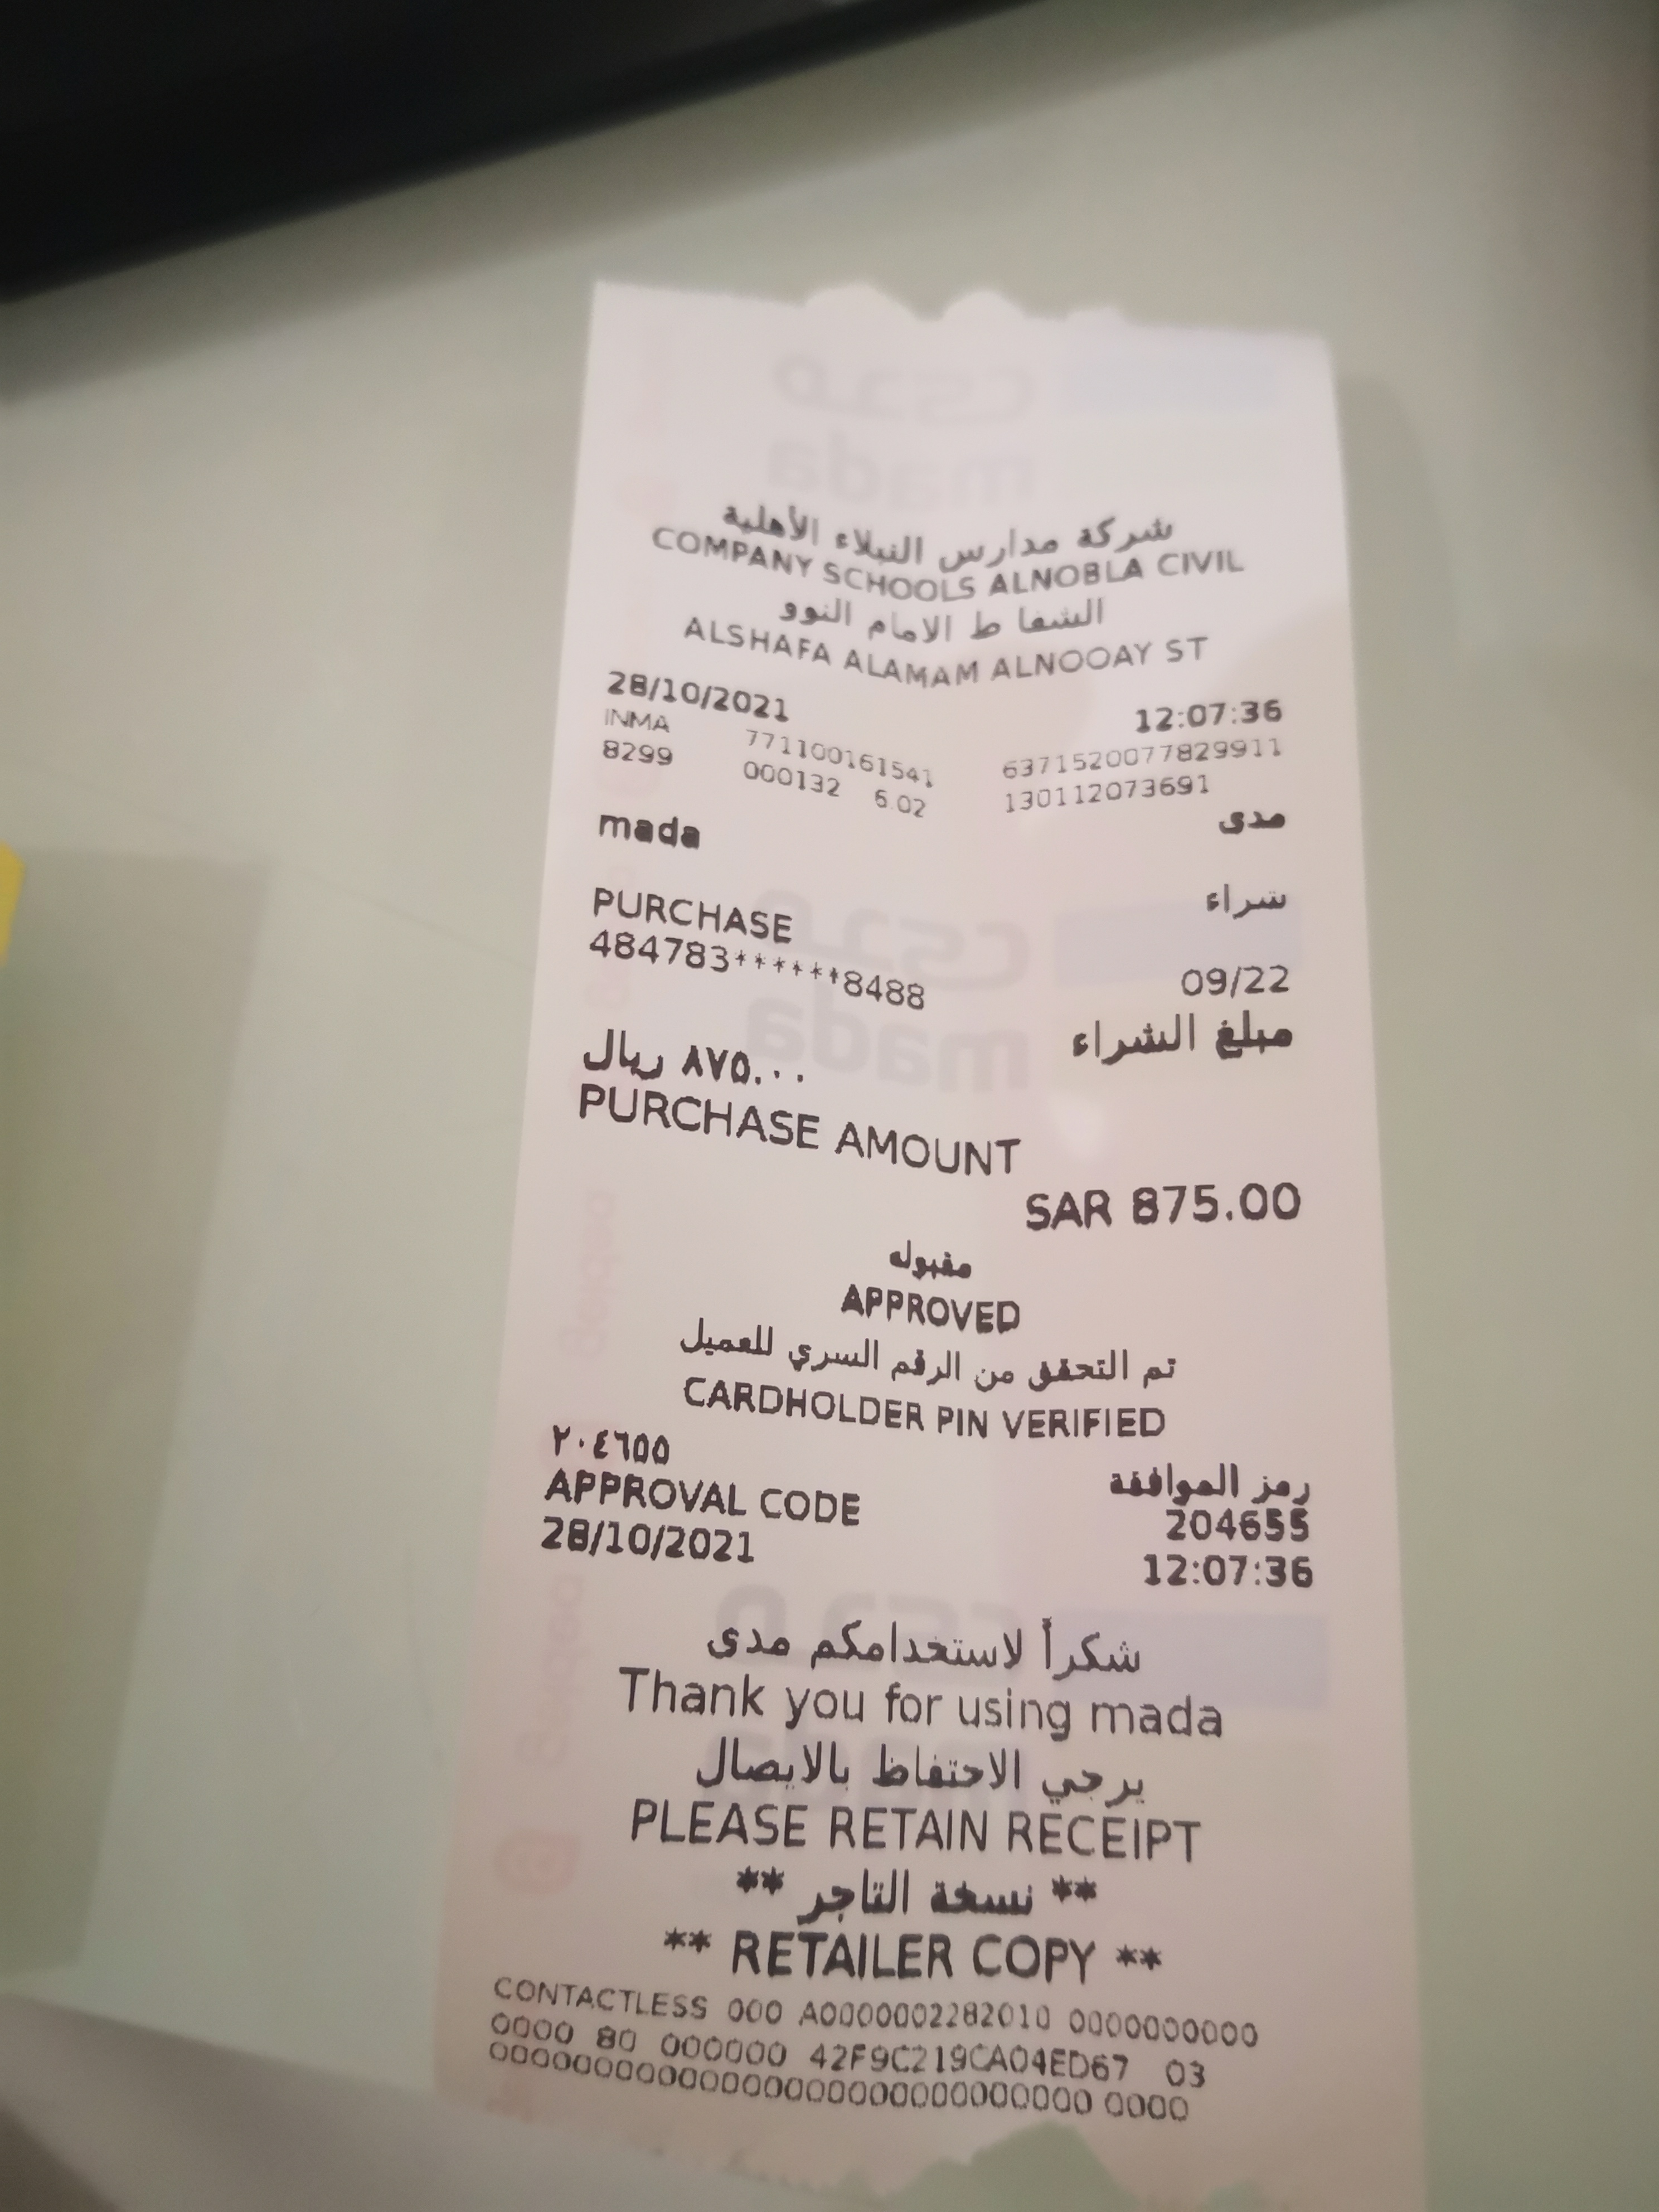 شركة مدارس النبلاء الأهلية
COMPANY SCHOOLS ALNOBLA CIVIL
الشفا ط الامام النوو
ALSHAFA ALAMAM ALNOOAY ST
28/10/2021 12:07:36
INMA 771100161541 6371520077829911
8299 000132 6.02 130112073691
mada مدى
PURCHASE شراء
484783******8488 09/22
مبلغ الشراء ٨٧٥.٠٠ ريال
PURCHASE AMOUNT
SAR 875.00
مقبوله
APPROVED
تم التحقق من الرقم السري للعميل
CARDHOLDER PIN VERIFIED
رمز الموافقة ٢٠٤٦٥٥
APPROVAL CODE 204655
28/10/2021 12:07:36
شكراً لاستخدامكم مدى
Thank you for using mada
يرجي الاحتفاظ بالايصال
PLEASE RETAIN RECEIPT
** نسخة التاجر **
** RETAILER COPY **
CONTACTLESS 000 A0000002282010 0000000000
0000 80 000000 42F9C219CA04ED67 03